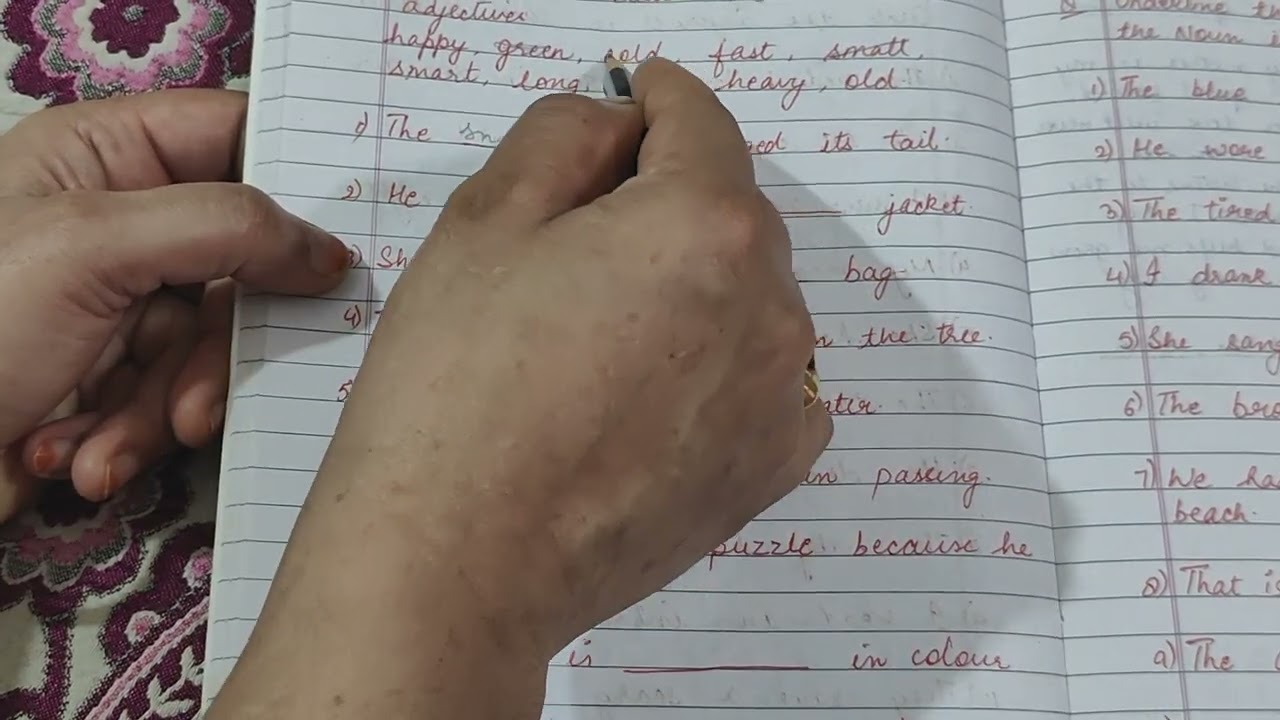 adjectives
happy, green, cold, fast, small,
smart, long, heavy, old
1) The sm its tail.
2) He jacket.
3) Sh bag
4) the tree.
5)
in passing.
puzzle because he
is in colour
Q Underline
the Noun
1) The blue
2) He wore
3) The tired
4) I drank
5) She sang
6) The
7) We
beach.
8) That is
a) The